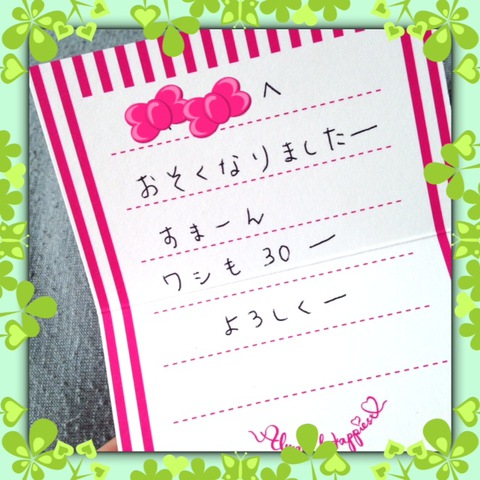 へ
おそくなりましたー
すまーん
ワシも 30 ー
よろしくー